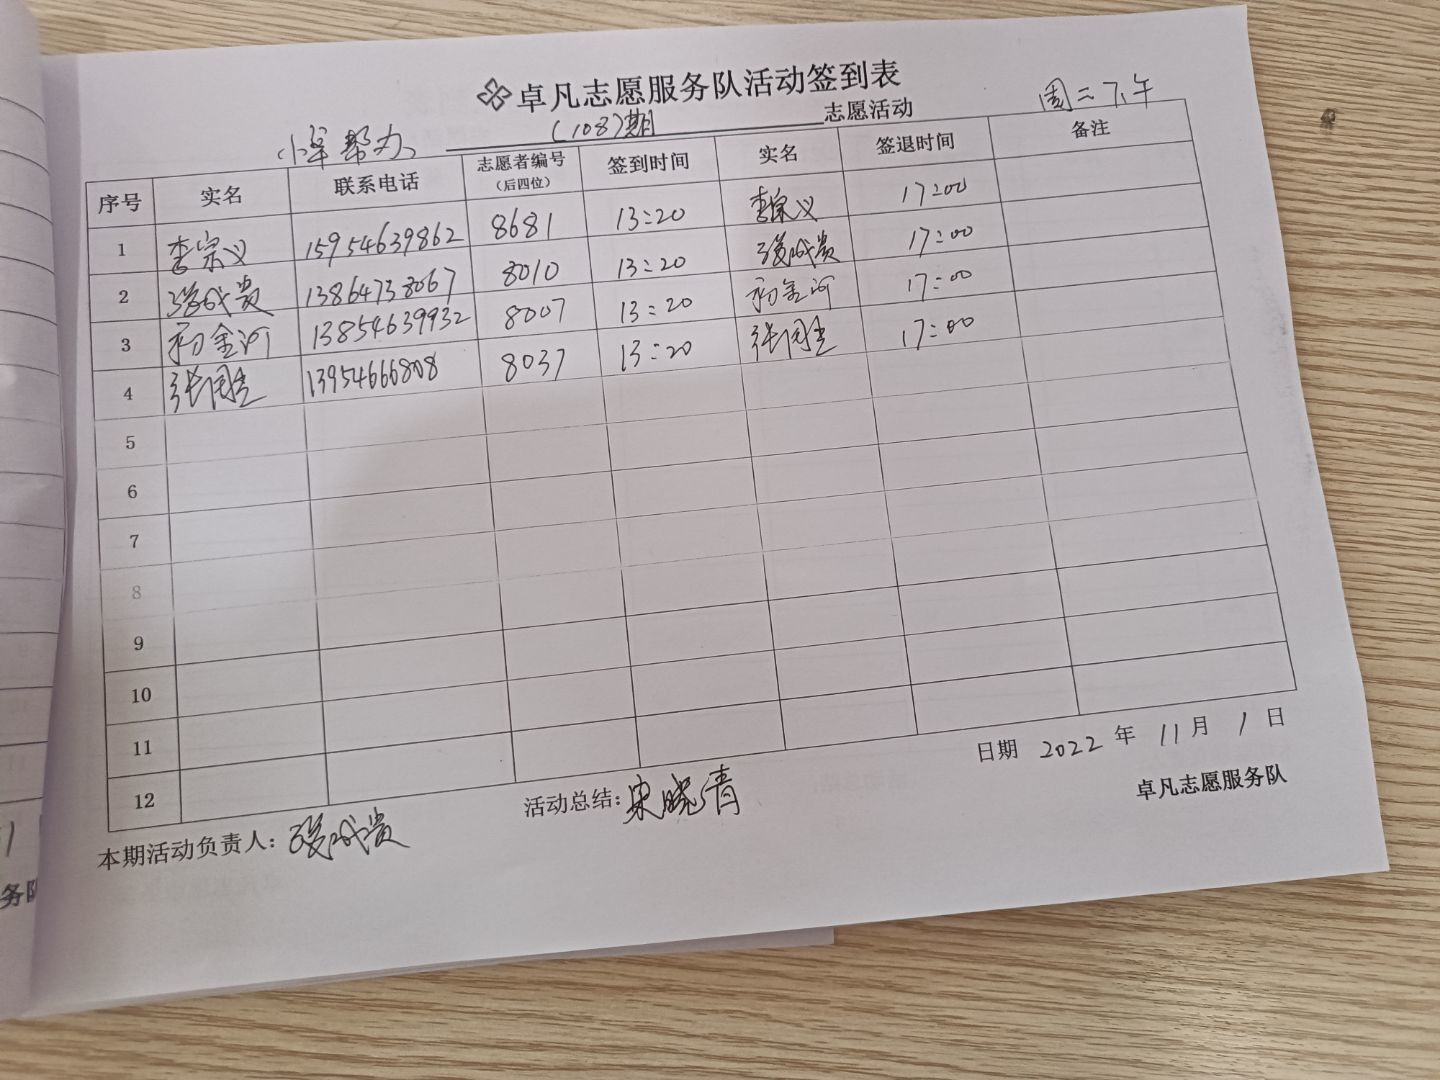 卓凡志愿服务队活动签到表
小卓帮办 (108)期 志愿活动 周二下午
序号 实名 联系电话 志愿者编号（后四位） 签到时间 实名 签退时间 备注
1 李宗义 15954639862 8681 13:20 李宗义 17:00
2 成贵 13864738067 8010 13:20 成贵 17:00
3 初金河 13854639932 8007 13:20 初金河 17:00
4 张国 13954666808 8037 13:20 张国 17:00
5
6
7
8
9
10
11
12
日期 2022 年 11 月 1 日
本期活动负责人： 成贵 活动总结： 宋晓清
卓凡志愿服务队
务队